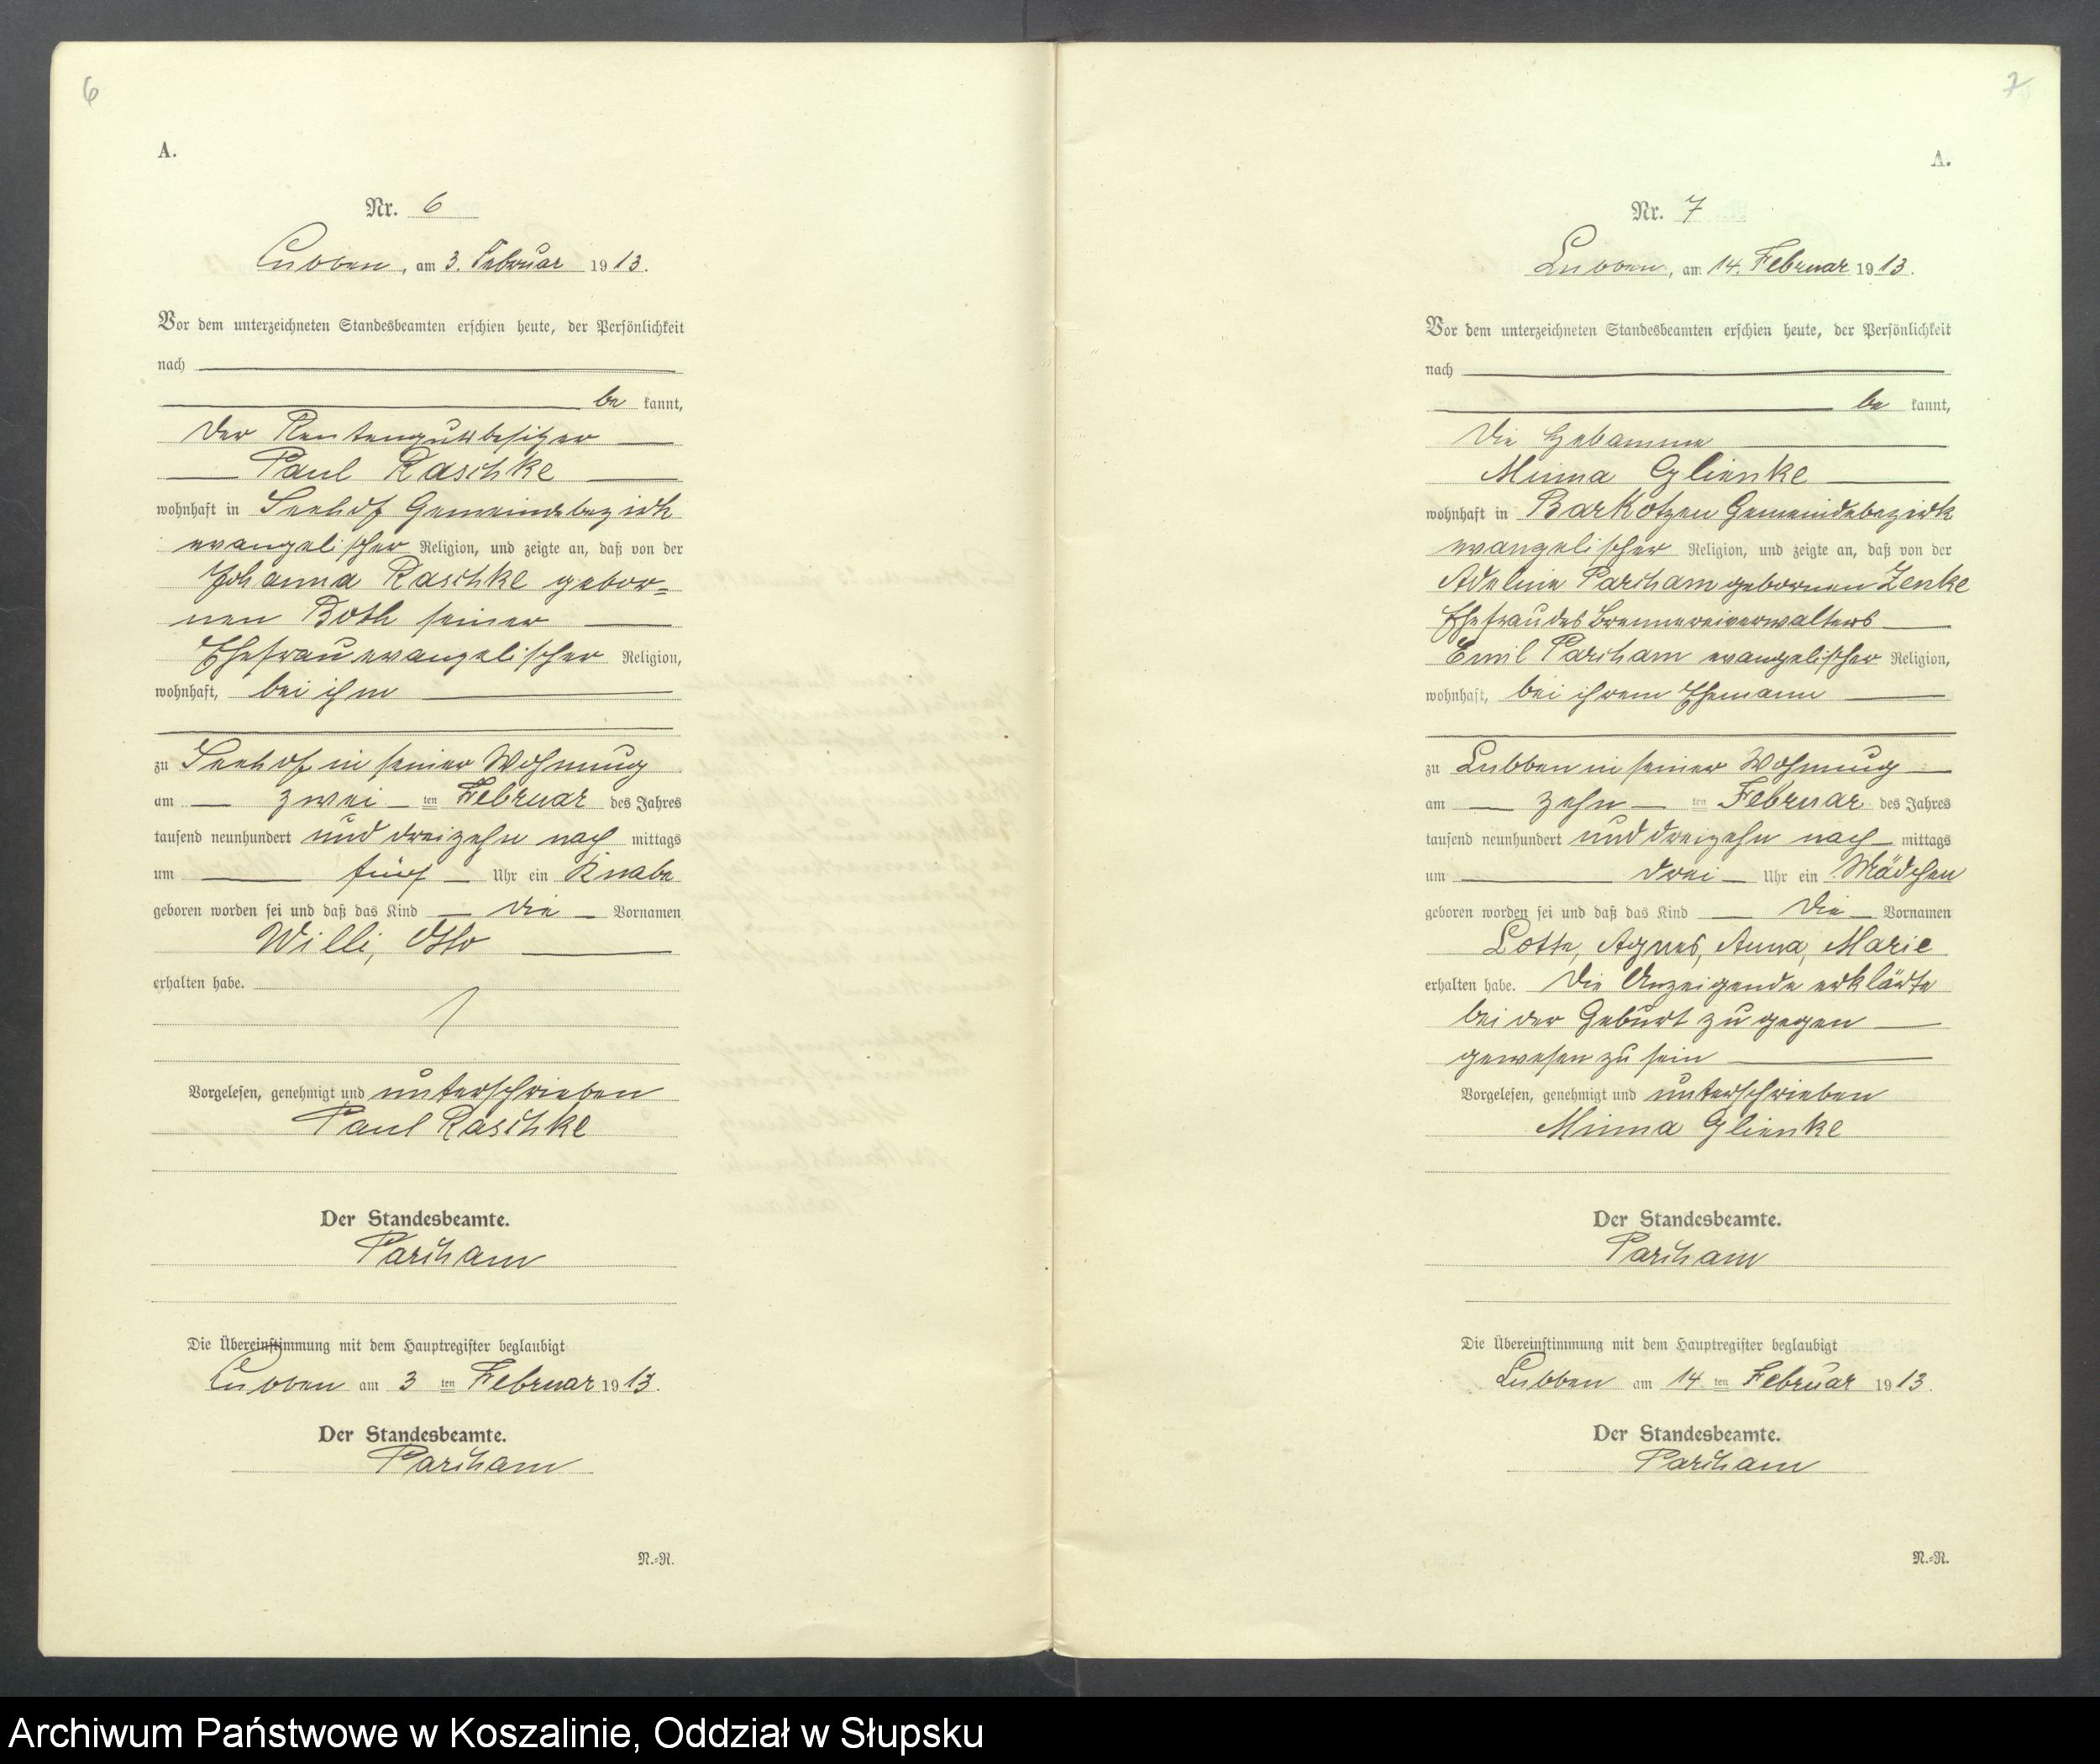 6
A.
Nr. 6
Lubben, am 3. Februar 1913.
Vor dem unterzeichneten Standesbeamten erschien heute, der Persönlichkeit
nach
be kannt,
der Rentengutsbesitzer
Paul Raschke
wohnhaft in Seehof Gemeindebezirk
evangelischer Religion, und zeigte an, daß von der
Johanna Raschke gebor=
nen Both seiner
Ehefrau evangelischer Religion,
wohnhaft, bei ihm
zu Seehof in seiner Wohnung
am zwei ten Februar des Jahres
tausend neunhundert und dreizehn nach mittags
um fünf Uhr ein Knabe
geboren worden sei und daß das Kind die Vornamen
Willi, Otto
erhalten habe.
Vorgelesen, genehmigt und unterschrieben
Paul Raschke
Der Standesbeamte.
Parcham
Die Übereinstimmung mit dem Hauptregister beglaubigt
Lubben am 3 ten Februar 1913.
Der Standesbeamte.
Parcham
N.=R.
7
A.
Nr. 7
Lubben, am 14. Februar 1913.
Vor dem unterzeichneten Standesbeamten erschien heute, der Persönlichkeit
nach
be kannt,
die Hebamme
Minna Glienke
wohnhaft in Barkotzen Gemeindebezirk
evangelischer Religion, und zeigte an, daß von der
Adeline Parcham gebornen Zenke
Ehefrau des Brennereiverwalters
Emil Parcham evangelischer Religion,
wohnhaft, bei ihrem Ehemann
zu Lubben in seiner Wohnung
am zehn ten Februar des Jahres
tausend neunhundert und dreizehn nach mittags
um drei Uhr ein Mädchen
geboren worden sei und daß das Kind die Vornamen
Lotte, Agnes, Anna, Marie
erhalten habe. Die Anzeigende erklärte
bei der Geburt zugegen
gewesen zu sein
Vorgelesen, genehmigt und unterschrieben
Minna Glienke
Der Standesbeamte.
Parcham
Die Übereinstimmung mit dem Hauptregister beglaubigt
Lubben am 14 ten Februar 1913.
Der Standesbeamte.
Parcham
N.=R.
Archiwum Państwowe w Koszalinie, Oddział w Słupsku